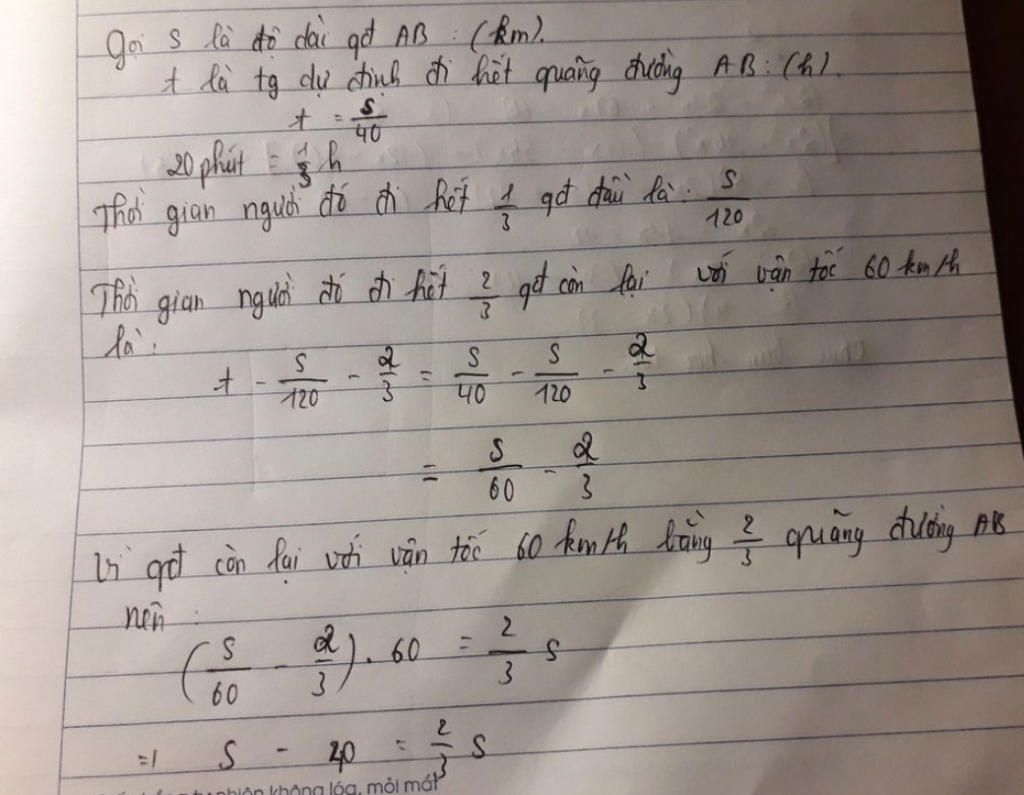 gọi S là độ dài qđ AB : (km).
t là tg dự định đi hết quãng đường AB : (h).
t = S/40
20 phút = 1/3 h
Thời gian người đó đi hết 1/3 qđ đầu là : S/120
Thời gian người đó đi hết 2/3 qđ còn lại với vận tốc 60 km/h
là :
t - S/120 - 2/3 = S/40 - S/120 - 2/3
= S/60 - 2/3
Vì qđ còn lại với vận tốc 60 km/h bằng 2/3 quãng đường AB
nên :
(S/60 - 2/3) . 60 = 2/3 S
=> S - 40 = 2/3 S
nhiên không lóa, mỏi mắt